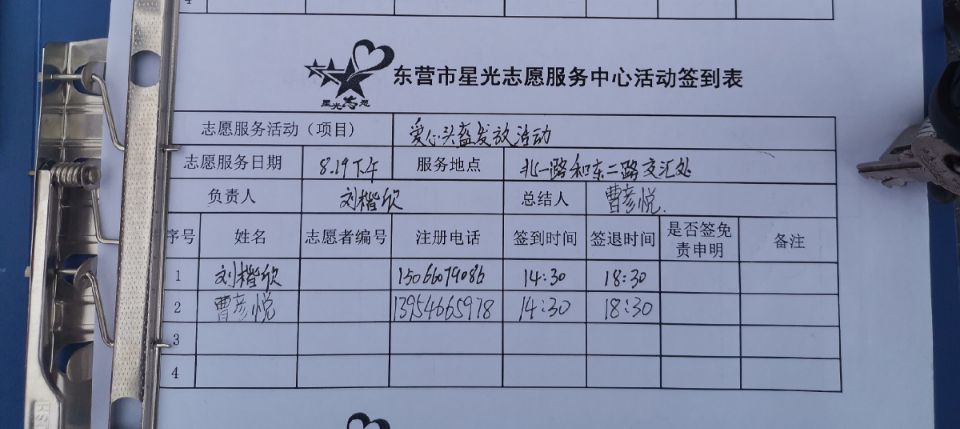 星光志愿
东营市星光志愿服务中心活动签到表
志愿服务活动（项目） 爱心头盔发放活动
志愿服务日期 8.19下午 服务地点 北一路和东二路交汇处
负责人 刘楷欣 总结人 曹彦悦.
序号 姓名 志愿者编号 注册电话 签到时间 签退时间 是否签免责申明 备注
1 刘楷欣 14:30 18:30
2 曹彦悦 13954665978 14:30 18:30
3
4